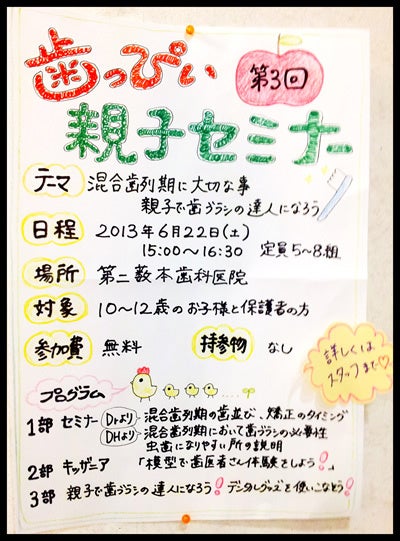 歯っぴぃ
第3回
親子セミナー
テーマ 混合歯列期に大切な事
親子で歯ブラシの達人になろう
日程 2013年6月22日(土)
15:00〜16:30 定員5〜8組
場所 第二数本歯科医院
対象 10〜12歳のお子様と保護者の方
参加費 無料 持参物 なし
詳しくは
スタッフまで♡
プログラム
1部 セミナー Drより 混合歯列期の歯並び、矯正のタイミング
DHより 混合歯列期において歯ブラシの必要性
虫歯になりやすい所の説明
2部 キッザニア 「模型で歯医者さん体験をしよう!」
3部 親子で歯ブラシの達人になろう! デンタルグッズを使いこなそう!